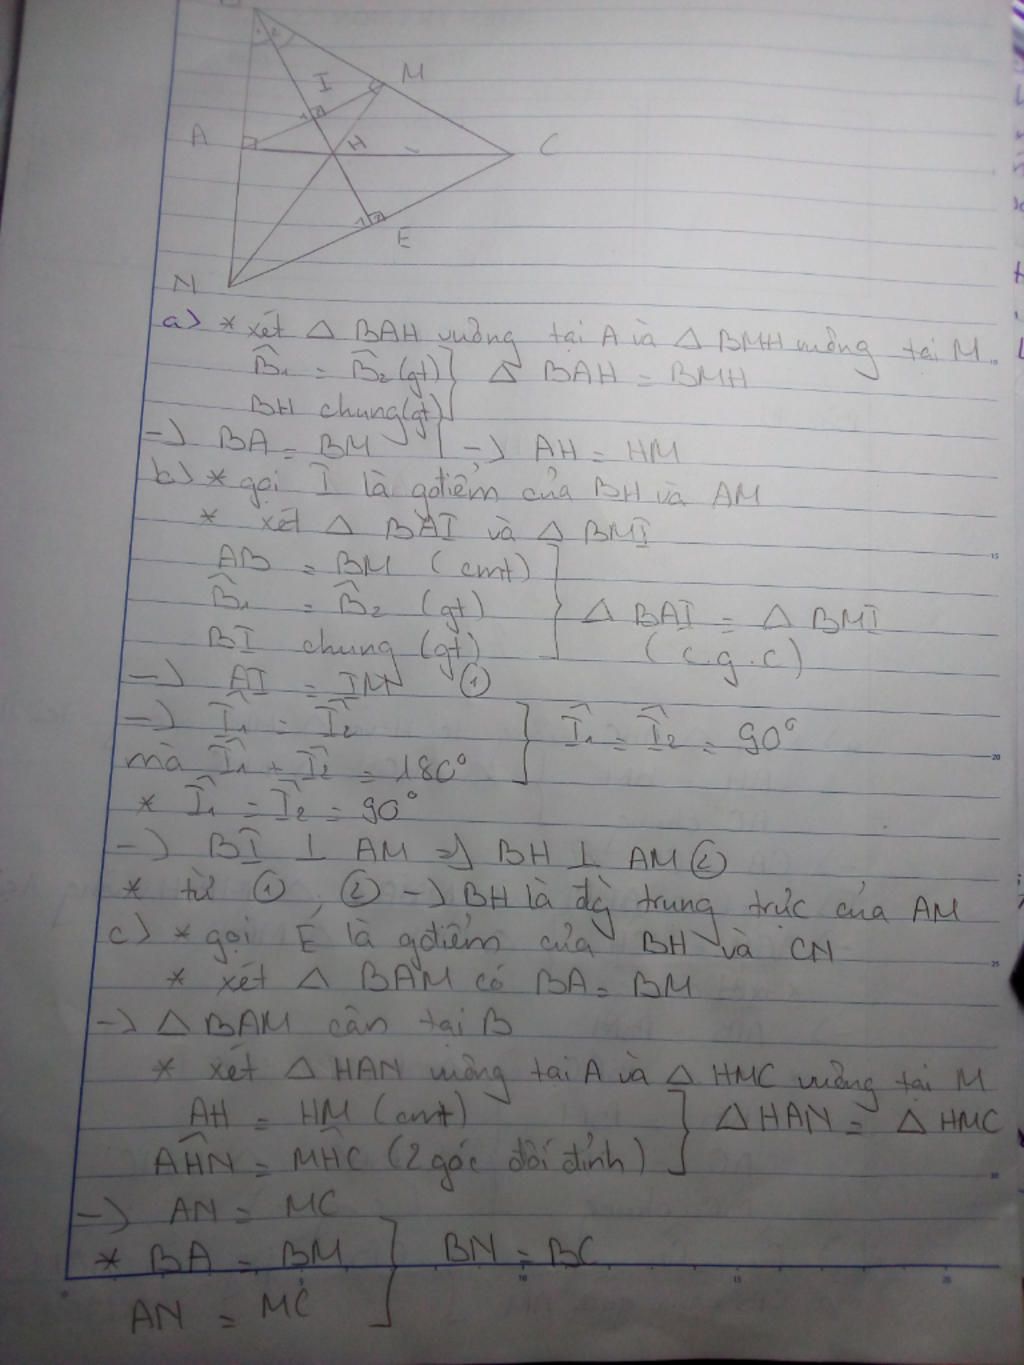 I
M
A
H
C
E
N
a) * xét △ BAH vuông tại A và △ BMH vuông tại M
B̂₁ = B̂₂ (gt) } △ BAH = BMH
BH chung (gt)
-> BA = BM | -> AH = HM
b) * gọi I là gđiểm của BH và AM
* xét △ BAI và △ BMI
AB = BM (cmt)
B̂₁ = B̂₂ (gt) } △ BAI = △ BMI
BI chung (gt) (c.g.c)
-> AI = IM ①
-> Î₁ = Î₂ } Î₁ = Î₂ = 90°
mà Î₁ + Î₂ = 180°
* Î₁ = Î₂ = 90°
-> BI ⊥ AM => BH ⊥ AM ②
* từ ① , ② -> BH là đg trung trực của AM
c) * gọi E là gđiểm của BH và CN
* xét △ BAM có BA = BM
-> △ BAM cân tại B
* xét △ HAN vuông tại A và △ HMC vuông tại M
AH = HM (cmt) } △ HAN = △ HMC
AĤN = MĤC (2 góc đối đỉnh)
-> AN = MC
* BA = BM } BN = BC
AN = MC